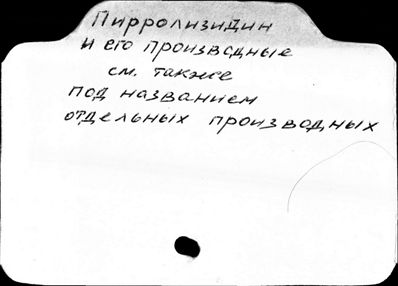 Пирролизидин
и его производные
см. также
под названием
отдельных производных